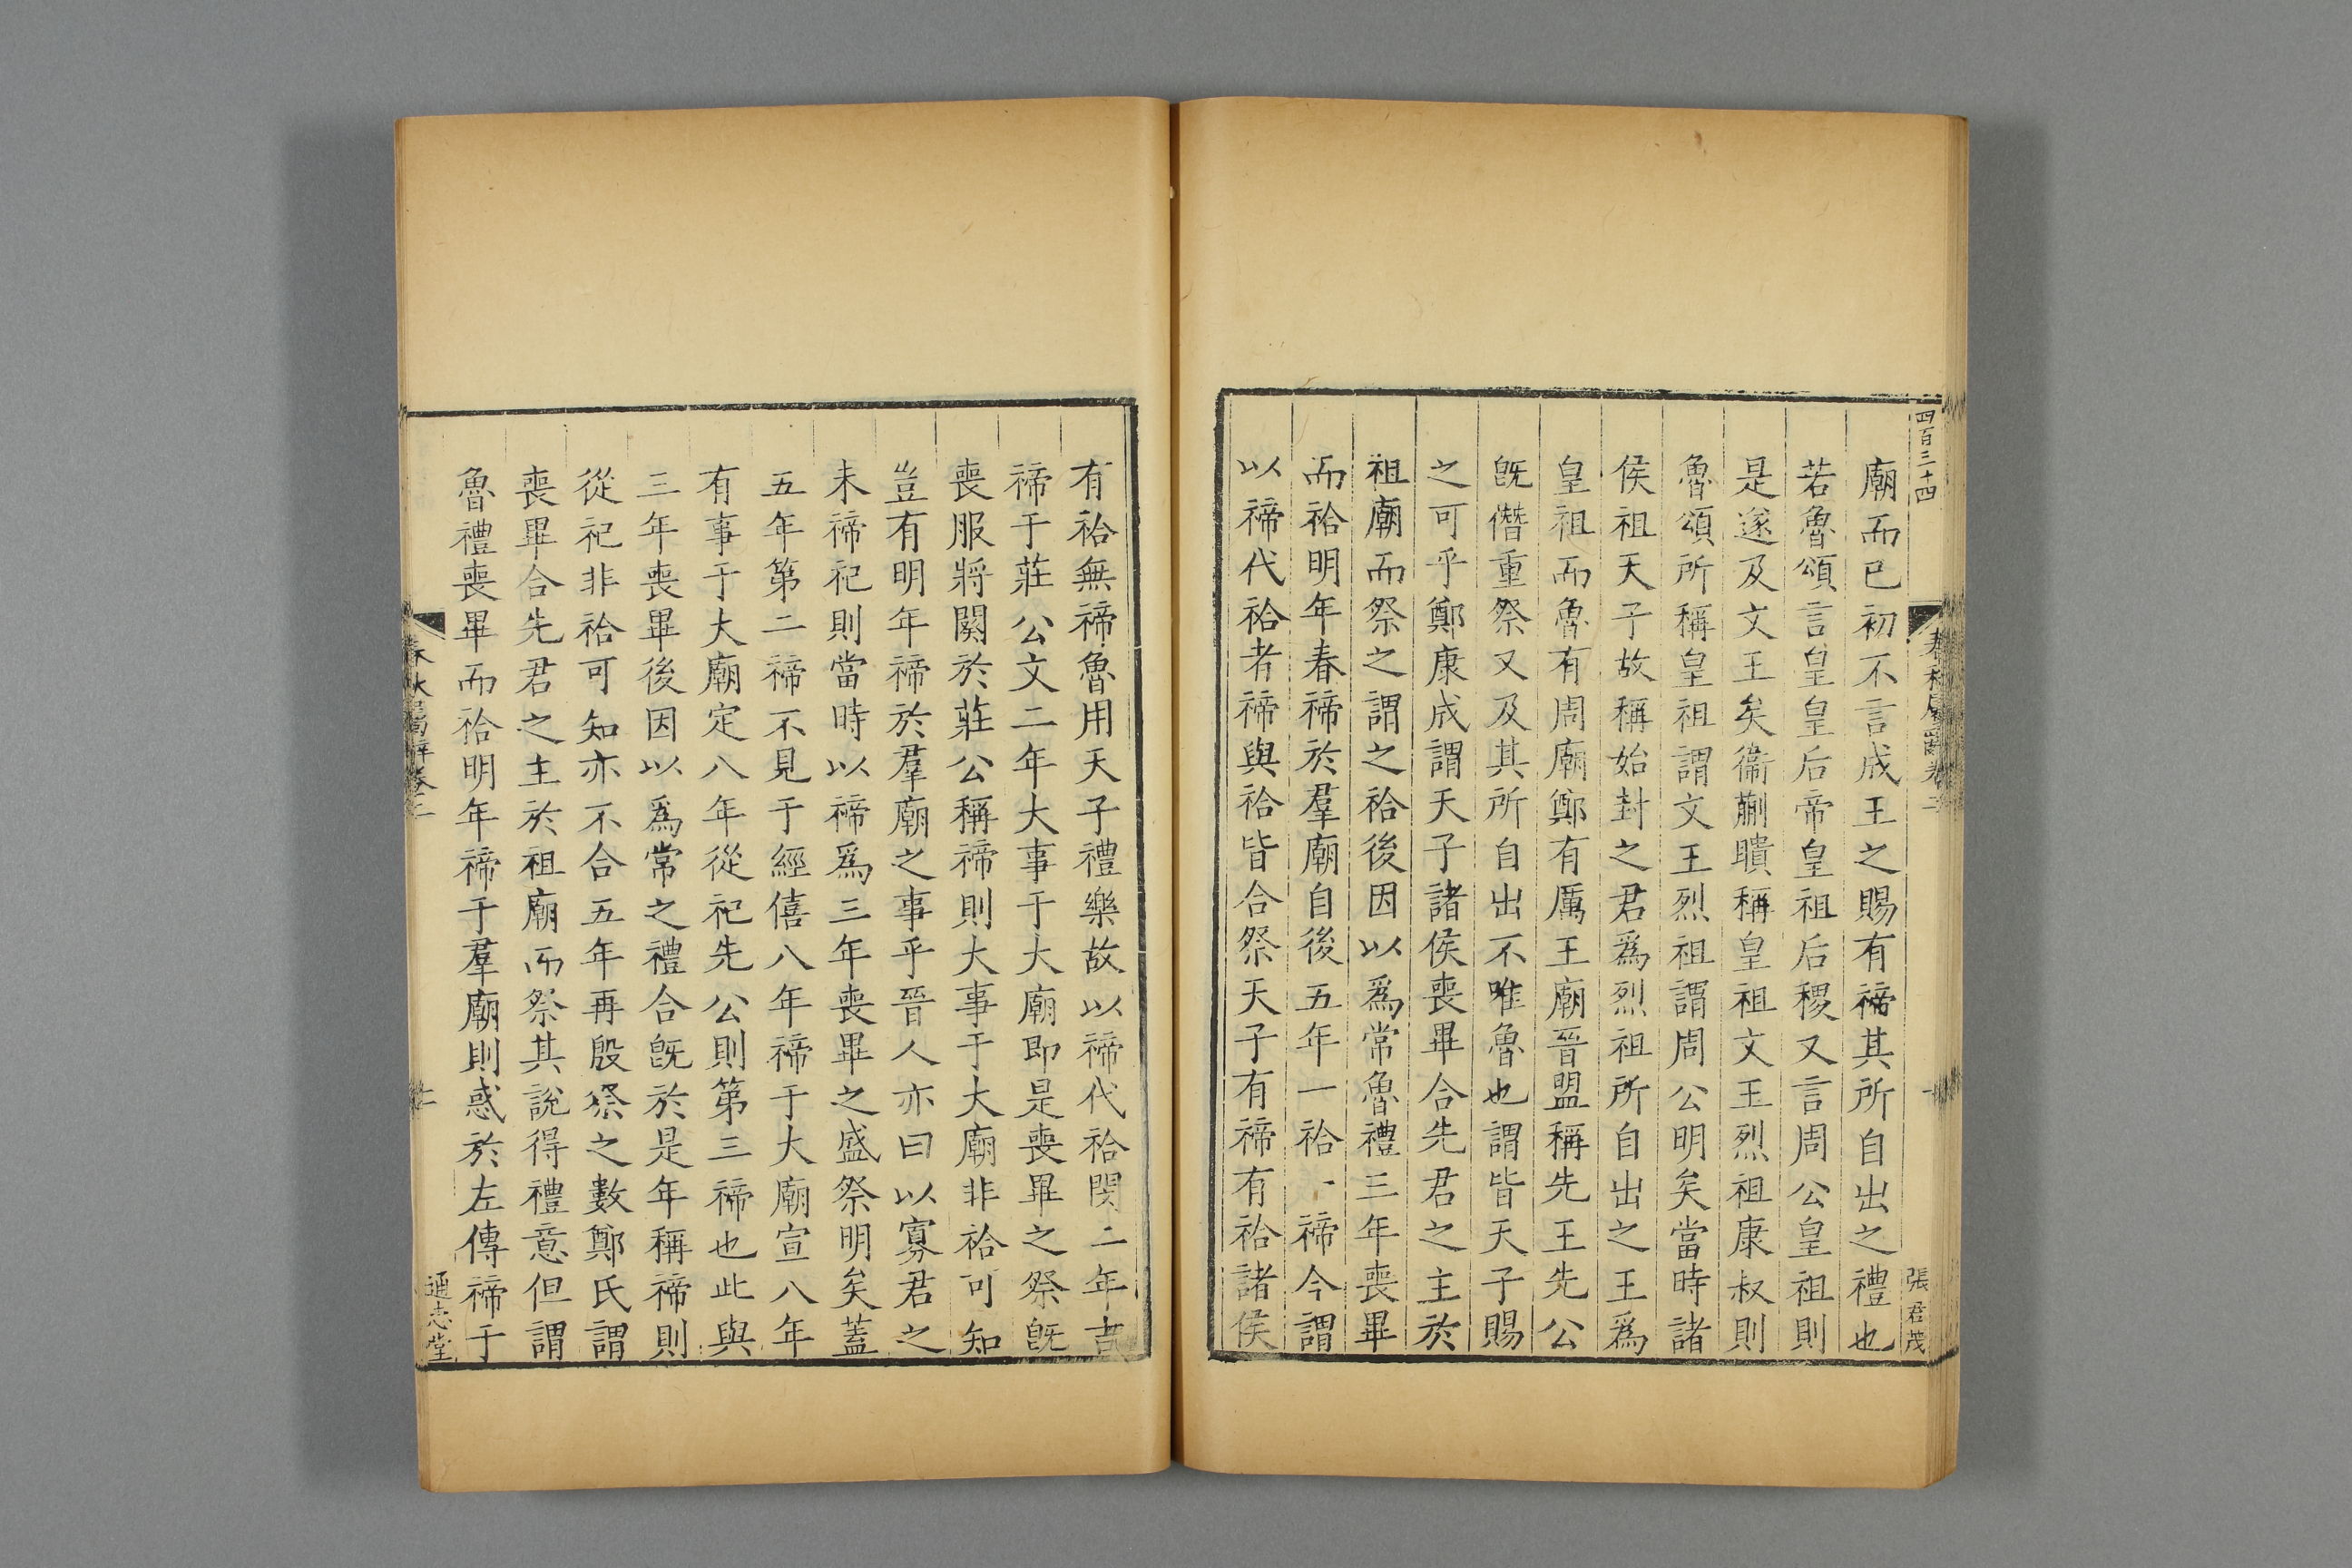 四百三十四
張君茂
廟而已初不言成王之賜有禘其所自出之禮也
若魯頌言皇皇后帝皇祖后稷又言周公皇祖則
是遂及文王矣衞蒯聵稱皇祖文王烈祖康叔則
魯頌所稱皇祖謂文王烈祖謂周公明矣當時諸
侯祖天子故稱始封之君爲烈祖所自出之王爲
皇祖而魯有周廟鄭有厲王廟晉盟稱先王先公
旣僭重祭又及其所自出不唯魯也謂皆天子賜
之可乎鄭康成謂天子諸侯喪畢合先君之主於
祖廟而祭之謂之祫後因以爲常魯禮三年喪畢
而祫明年春禘於羣廟自後五年一祫一禘今謂
以禘代祫者禘與祫皆合祭天子有禘有祫諸侯
有祫無禘魯用天子禮樂故以禘代祫閔二年吉
禘于莊公文二年大事于大廟即是喪畢之祭旣
喪服將闋於莊公稱禘則大事于大廟非祫可知
豈有明年禘於羣廟之事乎晉人亦曰以寡君之
未禘祀則當時以禘爲三年喪畢之盛祭明矣蓋
五年第二禘不見于經僖八年禘于大廟宣八年
有事于大廟定八年從祀先公則第三禘也此與
三年喪畢後因以爲常之禮合旣於是年稱禘則
從祀非祫可知亦不合五年再殷祭之數鄭氏謂
喪畢合先君之主於祖廟而祭其說得禮意但謂
魯禮喪畢而祫明年禘于羣廟則惑於左傳禘于
通志堂